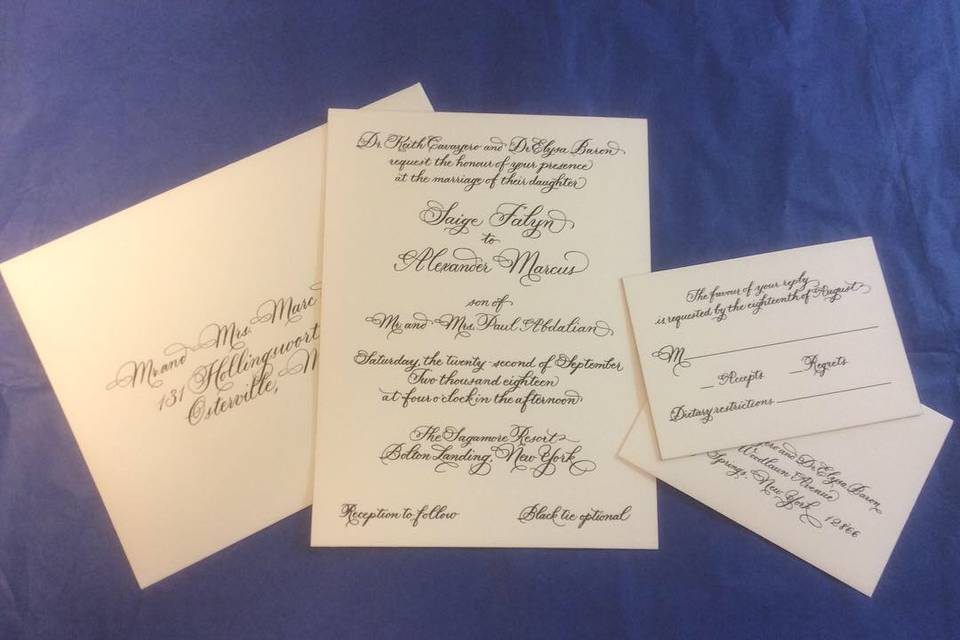 Mr. and Mrs. Marc
131 Hollingswort
Osterville, M
Dr. Keith Cavayero and Dr Elysa Baron
request the honour of your presence
at the marriage of their daughter
Saige Falyn
to
Alexander Marcus
son of
Mr. and Mrs. Paul Abdalian
Saturday, the twenty-second of September
Two thousand eighteen
at four o'clock in the afternoon
The Sagamore Resort
Bolton Landing, New York
Reception to follow
Black tie optional
The favour of your reply
is requested by the eighteenth of August
M
Accepts
Regrets
Dietary restrictions
ero and Dr Elysa Baron
Woodlawn Avenue
Springs, New York
12866